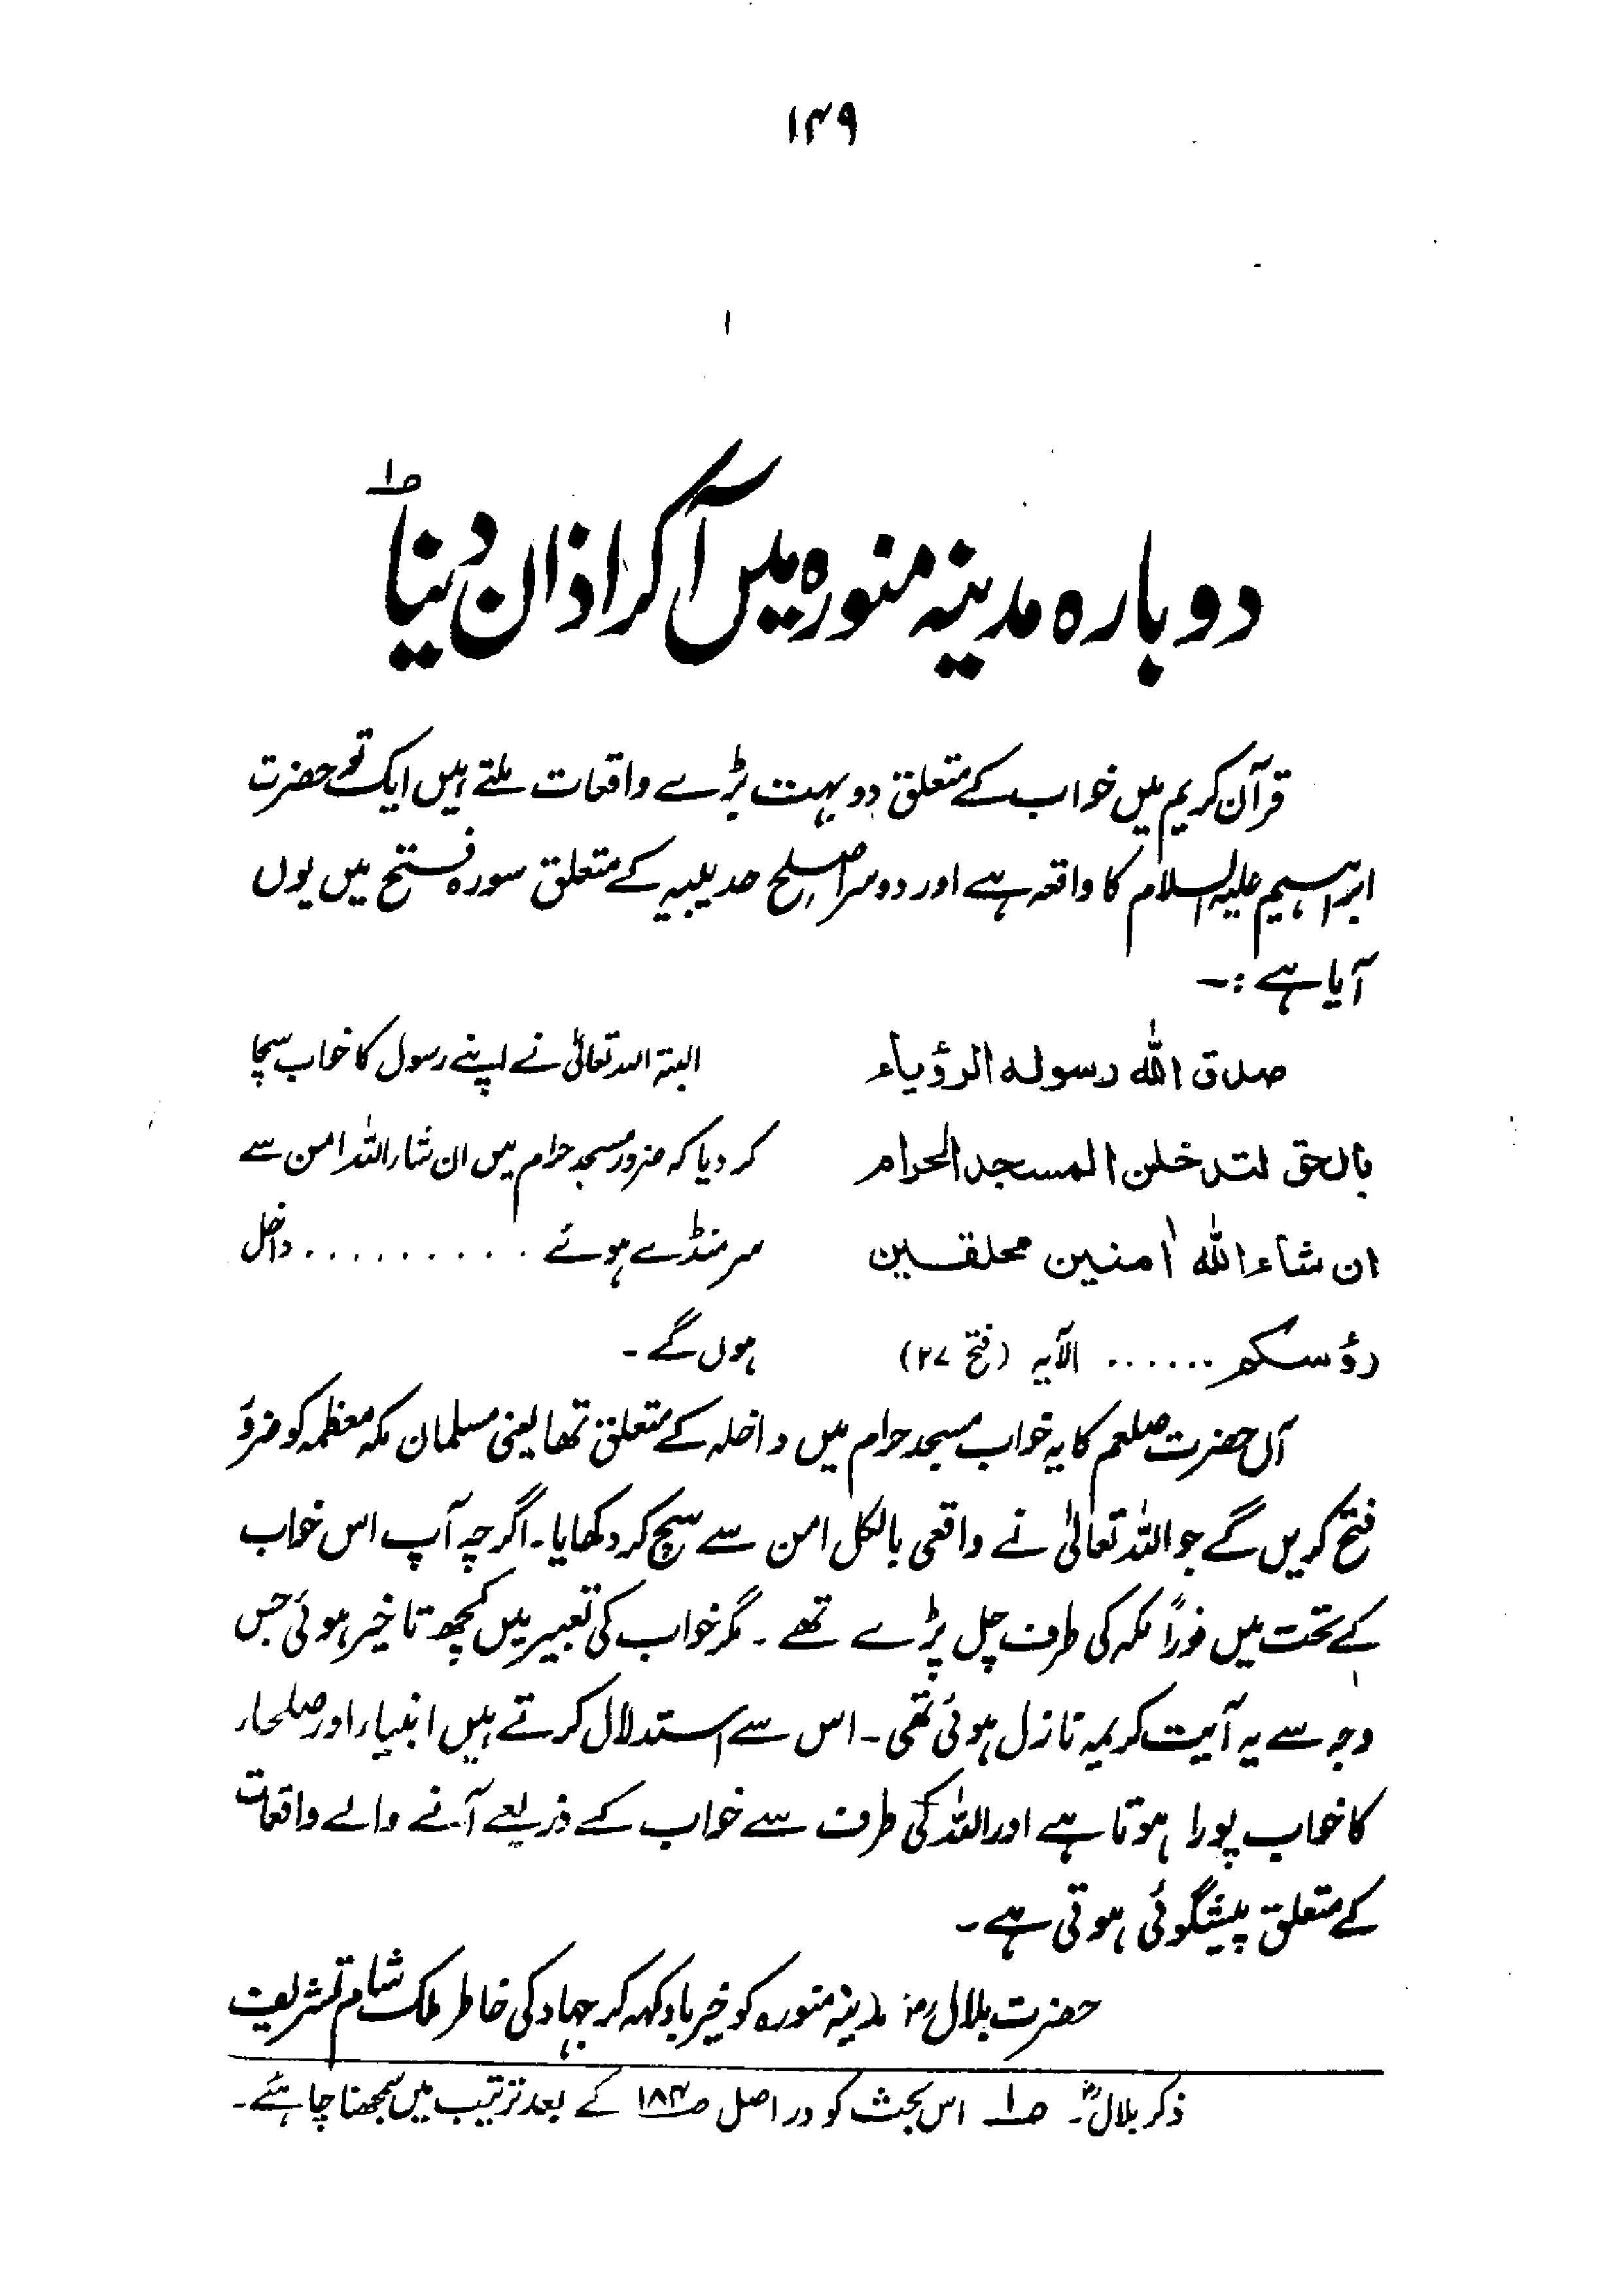 ۱۴۹
دوبارہ مدینہ منورہ میں آکر اذان دینا ؎۱
قرآن کریم میں خواب کے متعلق دو بہت بڑے واقعات ملتے ہیں ایک تو حضرت
ابراہیم علیہ السلام کا واقعہ ہے اور دوسرا صلح حدیبیہ کے متعلق سورہ فتح میں یوں
آیا ہے :-
صدق اللہ رسولہ الرؤیاء
بالحق لتدخلن المسجد الحرام
ان شاء اللہ اٰمنین محلقین
رؤسکم ...... الآیہ (فتح ۲۷)
البتہ اللہ تعالیٰ نے اپنے رسول کا خواب سچا
کر دیا کہ ضرور مسجد حرام میں ان شاء اللہ امن سے
سر منڈے ہوئے ......... داخل
ہوں گے ۔
آں حضرت صلعم کا یہ خواب مسجد حرام میں داخلہ کے متعلق تھا یعنی مسلمان مکہ معظمہ کو ضرور
فتح کریں گے جو اللہ تعالیٰ نے واقعی بالکل امن سے سچ کر دکھایا۔ اگرچہ آپ اس خواب
کے تحت میں فوراً مکہ کی طرف چل پڑے تھے ۔ مگر خواب کی تعبیر میں کچھ تاخیر ہوئی جس
وجہ سے یہ آیت کریمہ نازل ہوئی تھی ۔ اس سے استدلال کرتے ہیں انبیاء اور صلحاء
کا خواب پورا ہوتا ہے اور اللہ کی طرف سے خواب کے ذریعے آنے والے واقعات
کے متعلق پیشگوئی ہوتی ہے ۔
حضرت بلال رضؓ مدینہ منورہ کو خیرباد کہہ کر جہاد کی خاطر ملک شام تشریف
ذکر بلالؓ ۔ ؎۱ اس بحث کو در اصل صـ۱۸۴ کے بعد ترتیب میں سمجھنا چاہئے ۔